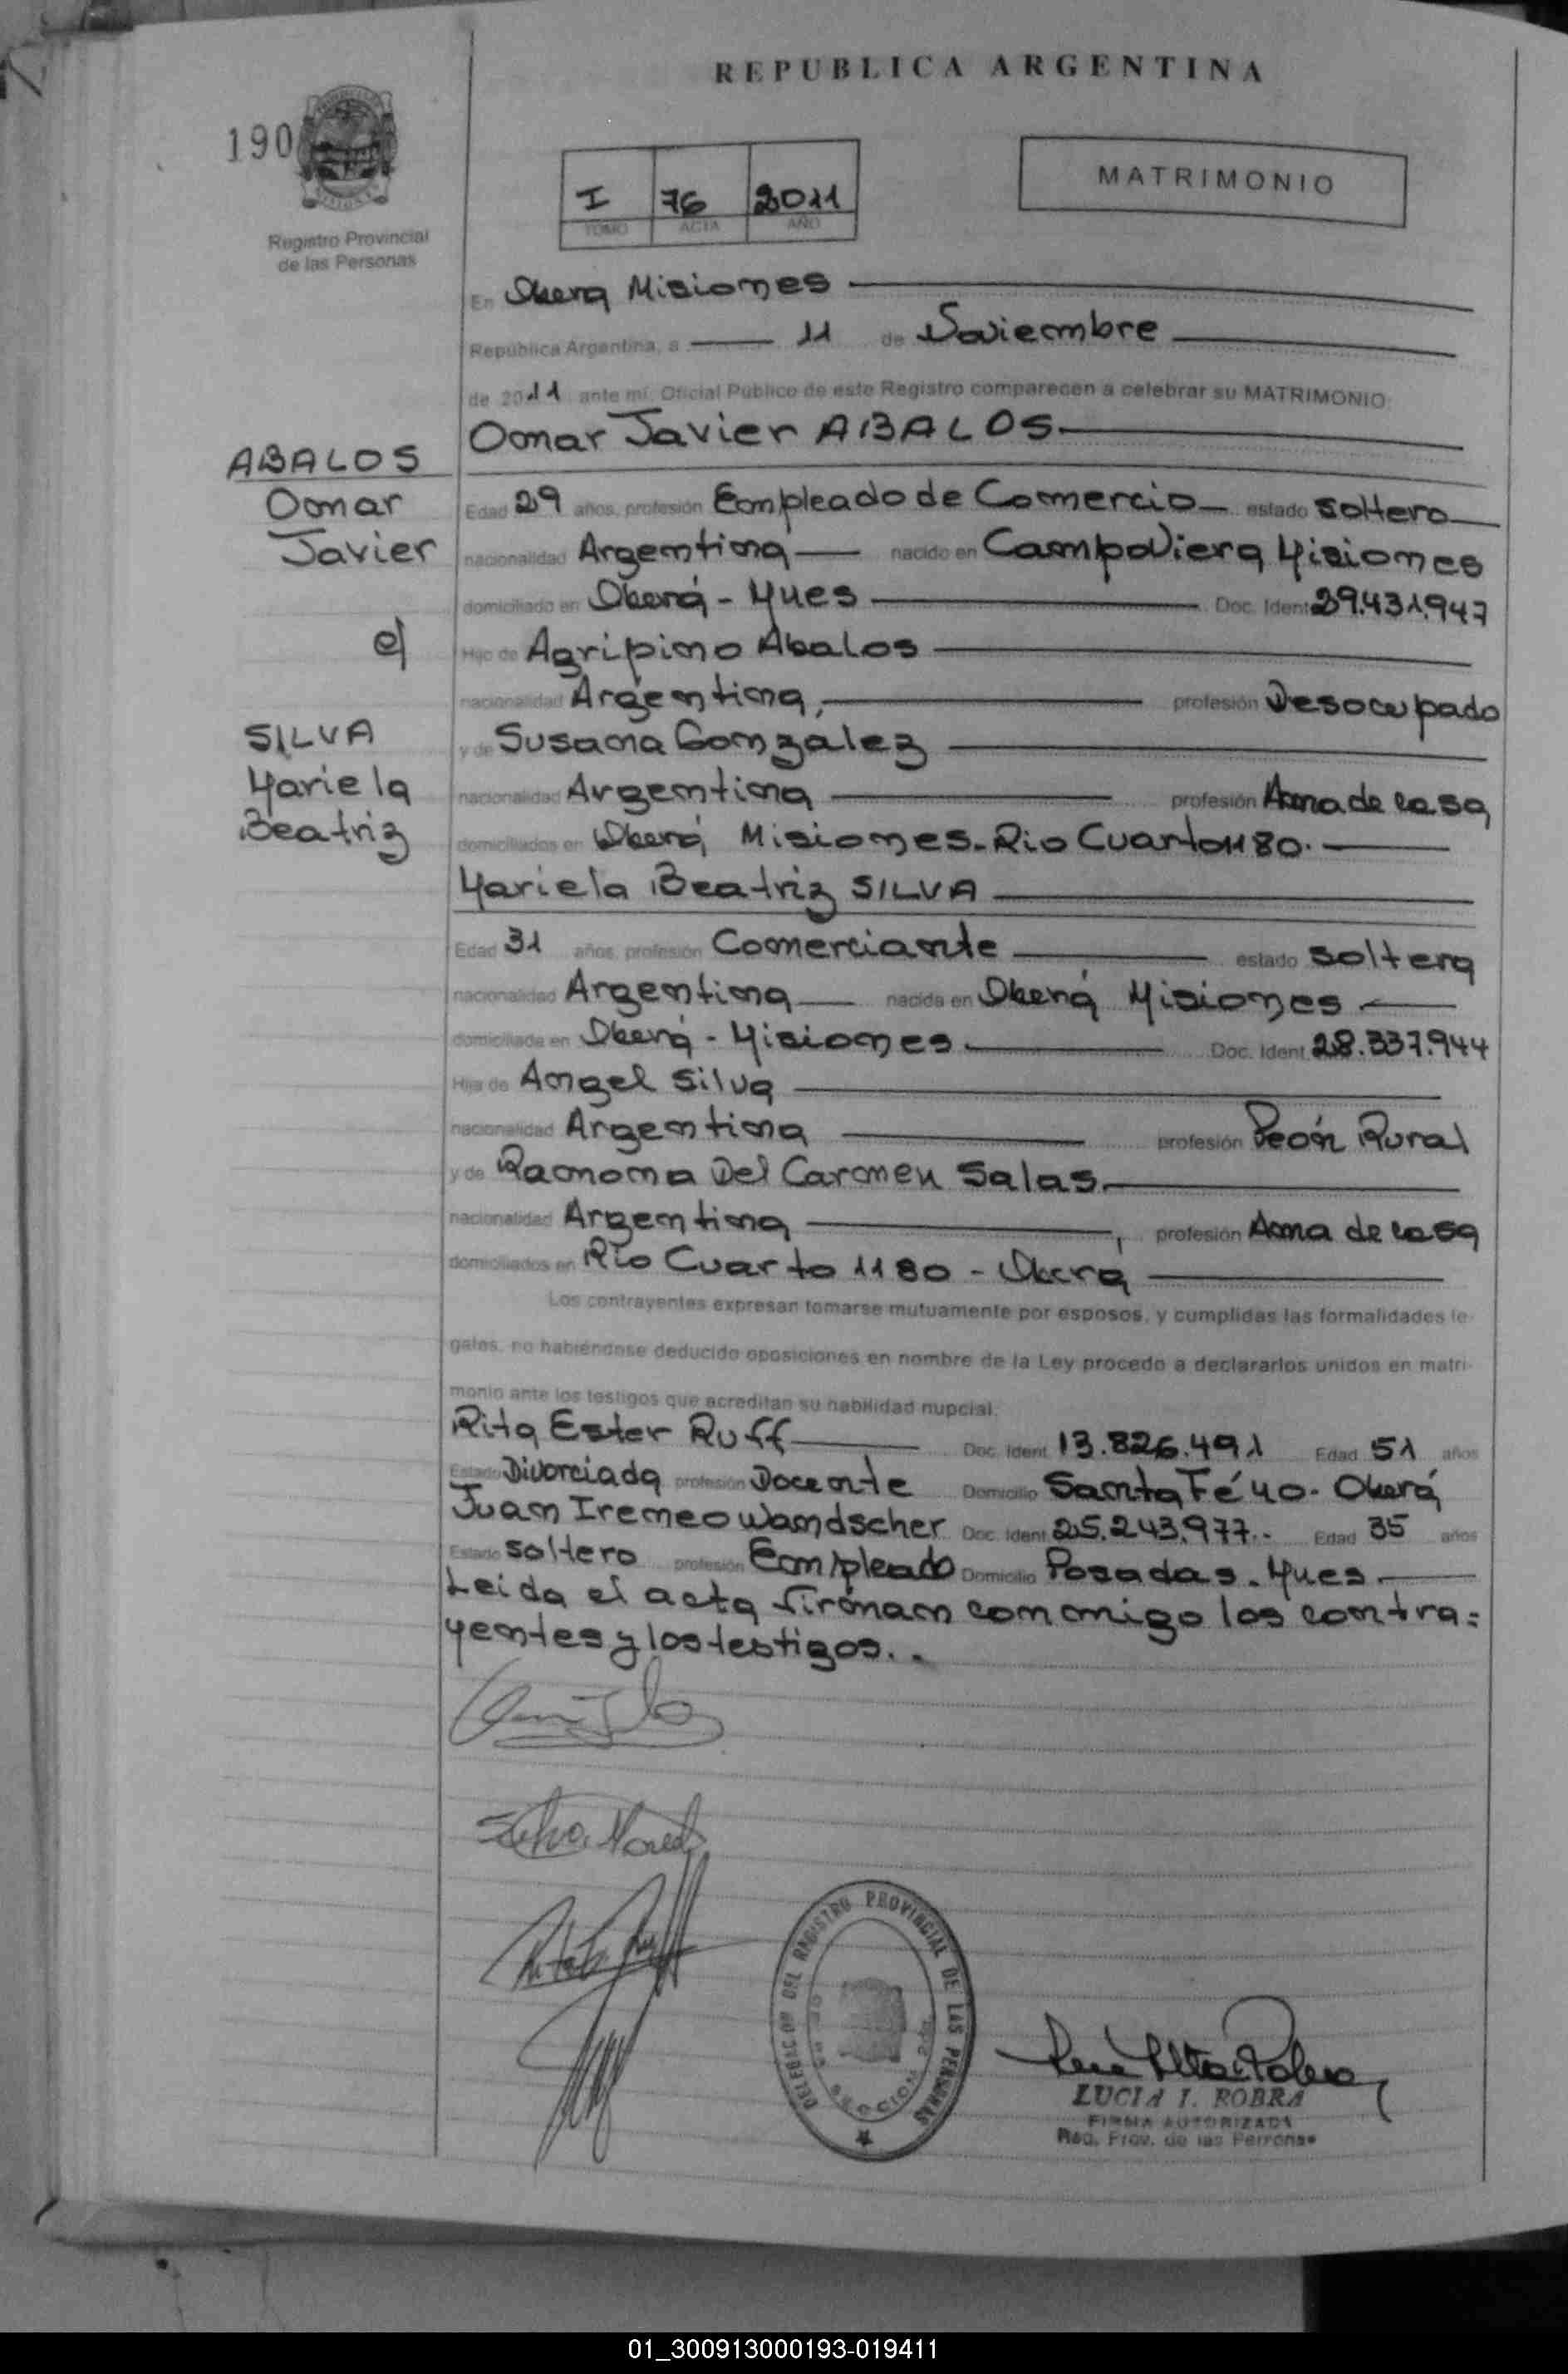 REPUBLICA ARGENTINA
190
Registro Provincial
de las Personas
I 76 2011
TOMO ACTA AÑO
MATRIMONIO
En Oberá Misiones
República Argentina, a 11 de Noviembre
de 2011 ante mí, Oficial Público de este Registro comparecen a celebrar su MATRIMONIO:
Omar Javier ABALOS
ABALOS
Omar
Javier
c/
SILVA
Mariela
Beatriz
Edad 29 años, profesión Empleado de Comercio estado soltero
nacionalidad Argentina nacido en Campo Viera Misiones
domiciliado en Oberá - Mnes Doc. Ident 29.431.947
Hijo de Agripino Abalos
nacionalidad Argentina, profesión Desocupado
y de Susana Gonzalez
nacionalidad Argentina profesión Ama de casa
domiciliados en Oberá Misiones. Rio Cuarto 1180.
Mariela Beatriz SILVA
Edad 31 años, profesión Comerciante estado soltera
nacionalidad Argentina nacida en Oberá Misiones
domiciliada en Oberá - Misiones Doc. Ident. 28.337.944
Hija de Angel Silva
nacionalidad Argentina profesión Peón Rural
y de Ramona Del Carmen Salas
nacionalidad Argentina, profesión Ama de casa
domiciliados en Rio Cuarto 1180 - Oberá
Los contrayentes expresan tomarse mutuamente por esposos, y cumplidas las formalidades le-
gales, no habiéndose deducido oposiciones en nombre de la Ley procedo a declararlos unidos en matri-
monio ante los testigos que acreditan su habilidad nupcial.
Rita Ester Ruff Doc. Ident. 13.826.491 Edad 51 años
Estado Divorciada profesión Docente Domicilio Santa Fé 40. Oberá
Juan Ireneo Wandscher Doc. Ident. 25.243.977.- Edad 35 años
Estado soltero profesión Empleado Domicilio Posadas. Mnes.
Leida el acta firman conmigo los contra=
yentes y los testigos..
DELEGACION DEL REGISTRO PROVINCIAL DE LAS PERSONAS
LUCIA I. ROBRA
FIRMA AUTORIZADA
Reg. Prov. de las Personas
01_300913000193-019411